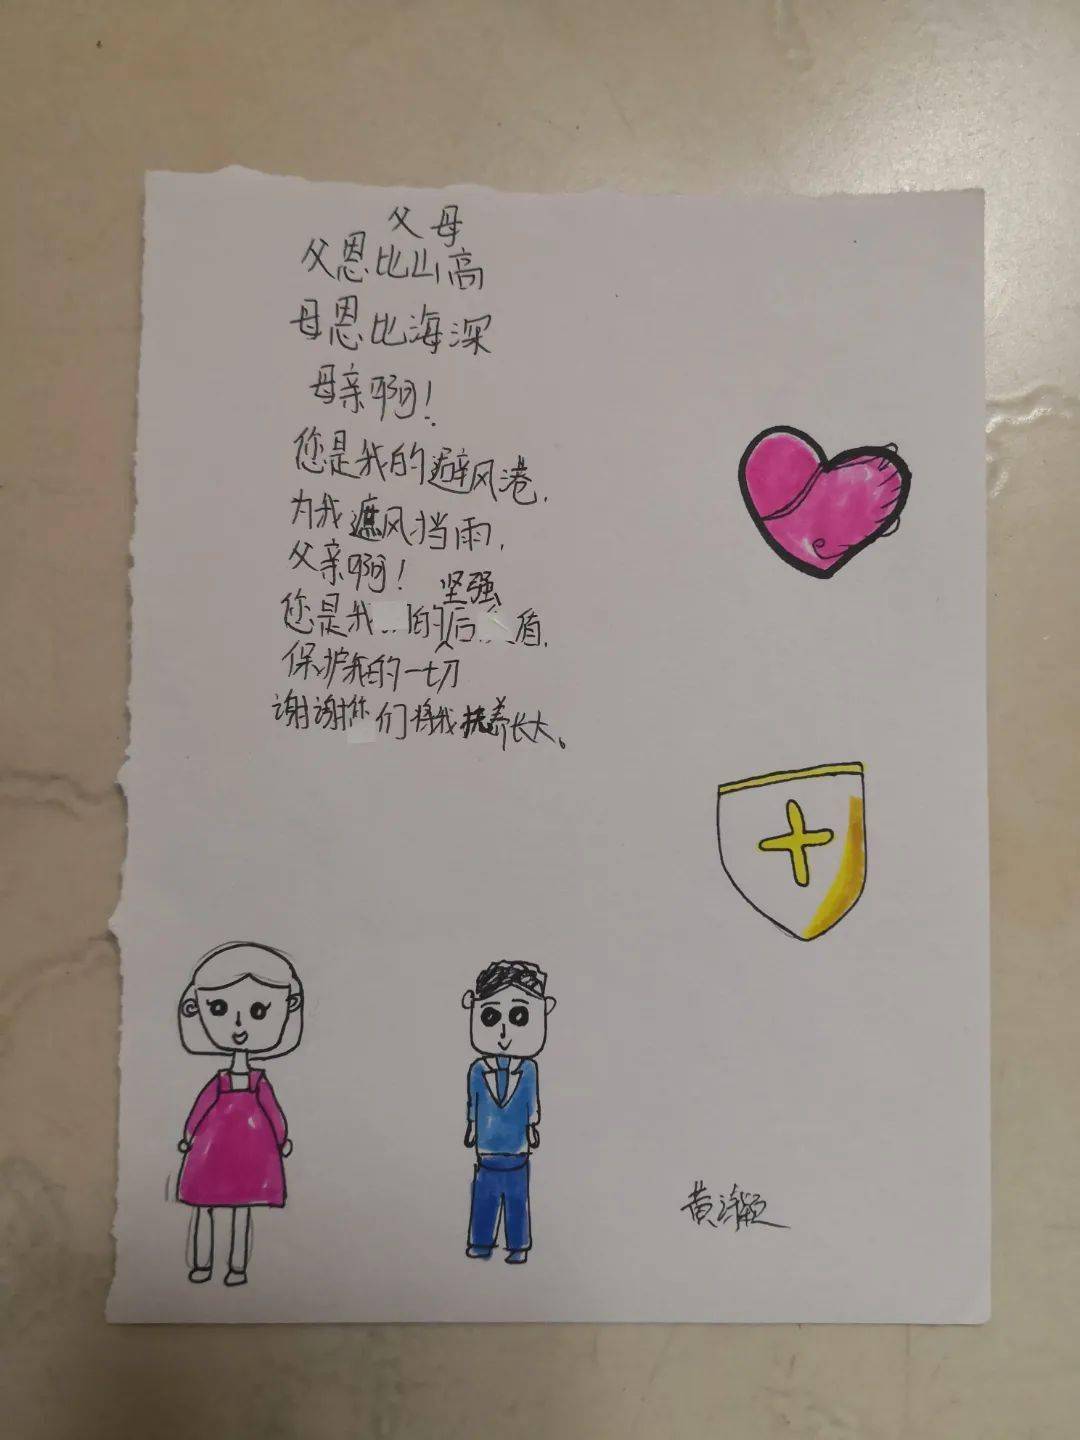 父母
父恩比山高
母恩比海深
母亲啊！
您是我的避风港，
为我遮风挡雨，
父亲啊！
您是我的坚强后盾，
保护我的一切
谢谢你们将我抚养长大。
黄诗颖